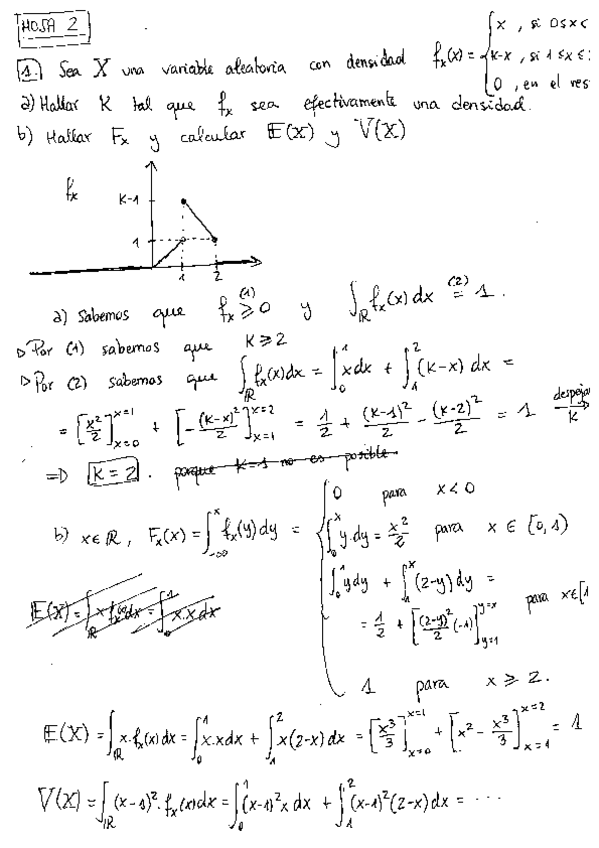 HOJA 2
1. Sea X una variable aleatoria con densidad f_X(x) = { x , si 0≤x<
K-x , si 1≤x≤
0 , en el res
a) Hallar K tal que f_X sea efectivamente una densidad.
b) Hallar F_X y calcular E(X) y V(X)
f_X
K-1
1
1 2
a) Sabemos que f_X ≥ 0 (1) y ∫_ℝ f_X(x) dx = 1 (2).
▷ Por (1) sabemos que K ≥ 2
▷ Por (2) sabemos que ∫_ℝ f_X(x)dx = ∫_0^1 x dx + ∫_1^2 (K-x) dx =
= [x²/2]_{x=0}^{x=1} + [-(K-x)²/2]_{x=1}^{x=2} = 1/2 + (K-1)²/2 - (K-2)²/2 = 1 despejar K →
⇒ K = 2. porque K=1 no es posible.
b) x∈ℝ, F_X(x) = ∫_{-∞}^x f_X(y)dy = { 0 para x<0
∫_0^x y dy = x²/2 para x ∈ [0,1)
∫_0^1 y dy + ∫_1^x (2-y) dy =
= 1/2 + [(2-y)²/2 (-1)]_{y=1}^{y=x} para x∈[1
1 para x ≥ 2.
E(X) = ∫_ℝ x f_X(x)dx = ∫_0^1 x·x dx
E(X) = ∫_ℝ x·f_X(x) dx = ∫_0^1 x·x dx + ∫_1^2 x(2-x) dx = [x³/3]_{x=0}^{x=1} + [x² - x³/3]_{x=1}^{x=2} = 1
V(X) = ∫_ℝ (x-1)²·f_X(x)dx = ∫_0^1 (x-1)² x dx + ∫_1^2 (x-1)²(2-x) dx = ...